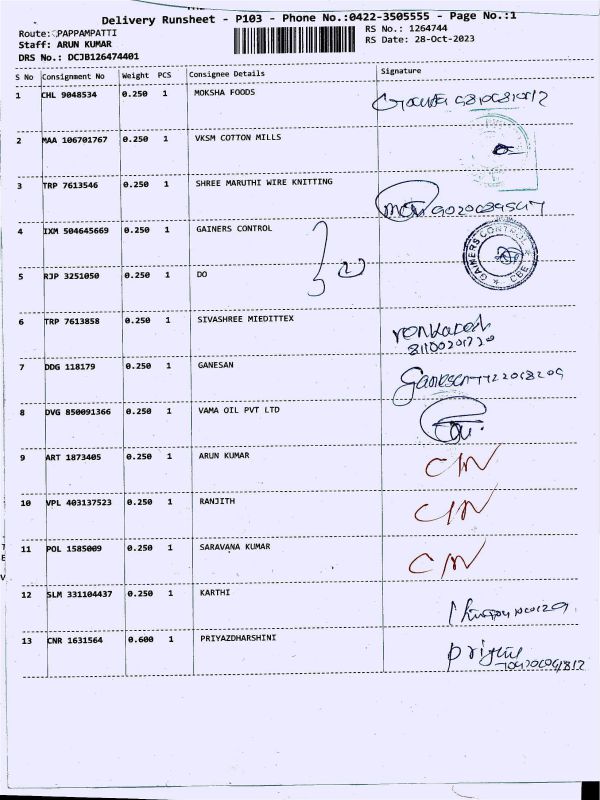 Delivery Runsheet - P103 - Phone No.:0422-3505555 - Page No.:1
Route: PAPPAMPATTI
RS No.: 1264744
Staff: ARUN KUMAR
RS Date: 28-Oct-2023
DRS No.: DCJB126474401
S No Consignment No Weight PCS Consignee Details Signature
1 CHL 9048534 0.250 1 MOKSHA FOODS
2 MAA 106701767 0.250 1 VKSM COTTON MILLS
3 TRP 7613546 0.250 1 SHREE MARUTHI WIRE KNITTING
4 IXM 504645669 0.250 1 GAINERS CONTROL
GAINERS CONTROL CBE
5 RJP 3251050 0.250 1 DO
(2)
6 TRP 7613858 0.250 1 SIVASHREE MIEDITTEX
7 DDG 118179 0.250 1 GANESAN Ganesan
8 DVG 850091366 0.250 1 VAMA OIL PVT LTD
9 ART 1873405 0.250 1 ARUN KUMAR C/N
10 VPL 403137523 0.250 1 RANJITH C/N
11 POL 1585009 0.250 1 SARAVANA KUMAR C/N
12 SLM 331104437 0.250 1 KARTHI
13 CNR 1631564 0.600 1 PRIYAZDHARSHINI